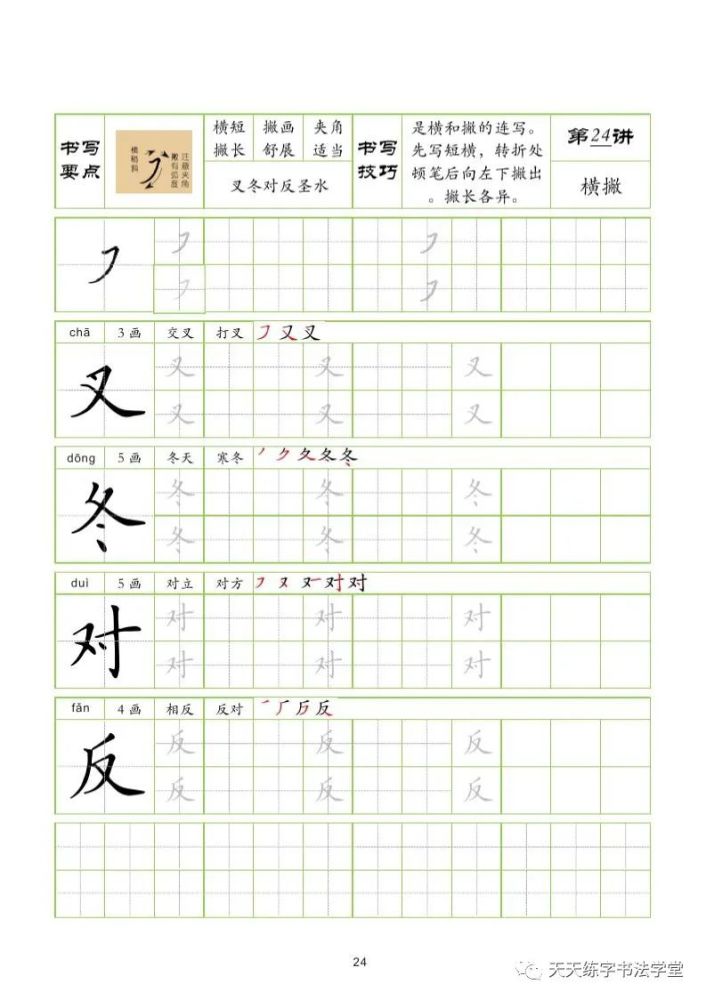 书写要点
横稍斜
撇有弧度
注意夹角
横短撇长
撇画舒展
夹角适当
叉冬对反圣水
书写技巧
是横和撇的连写。
先写短横，转折处
顿笔后向左下撇出
。撇长各异。
第24讲
横撇
㇇ ㇇ ㇇
㇇ ㇇
chā 3画 交叉 打叉 ㇇又叉
叉 叉 叉 叉
叉 叉 叉
dōng 5画 冬天 寒冬 丿 ㇇ 夂 冬 冬
冬 冬 冬 冬
冬 冬 冬
duì 5画 对立 对方 ㇇ 又 对 对
对 对 对 对
对 对 对
fǎn 4画 相反 反对 厂 反
反 反 反 反
反 反 反
24
天天练字书法学堂